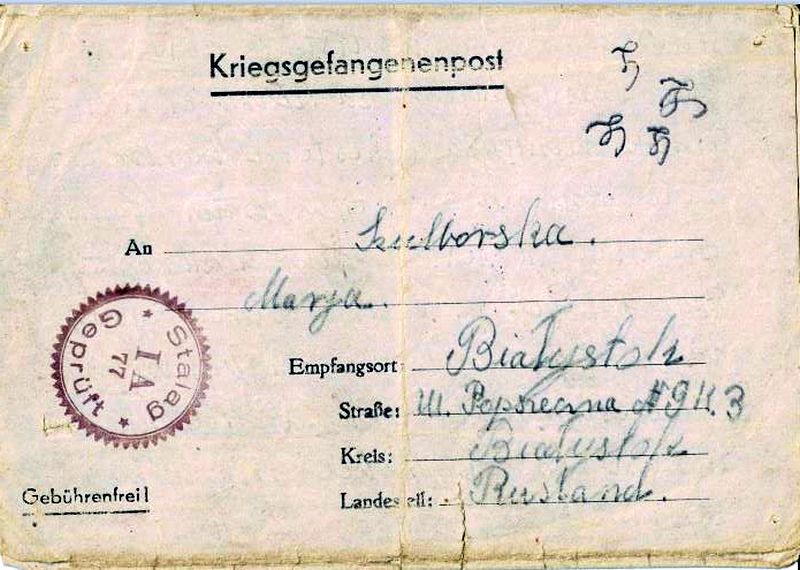 Kriegsgefangenenpost
An Szulborska.
Marja.
Stalag
I A
77
Geprüft
Empfangsort: Białystok
Straße: Ul. Poprzeczna № 9 K. 3
Kreis: Białystok
Gebührenfrei!
Landesteil: Rusland.